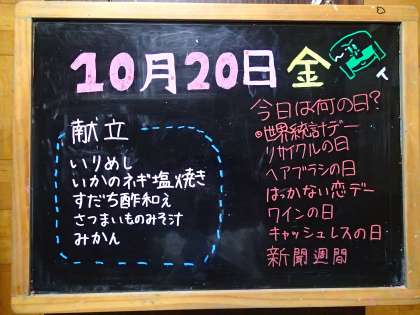 10月20日 金
献立
いりめし
いかのネギ塩焼き
すだち酢和え
さつまいものみそ汁
みかん
今日は何の日?
◎世界統計デー
リサイクルの日
ヘアブラシの日
はっかない恋デー
ワインの日
キャッシュレスの日
新聞週間